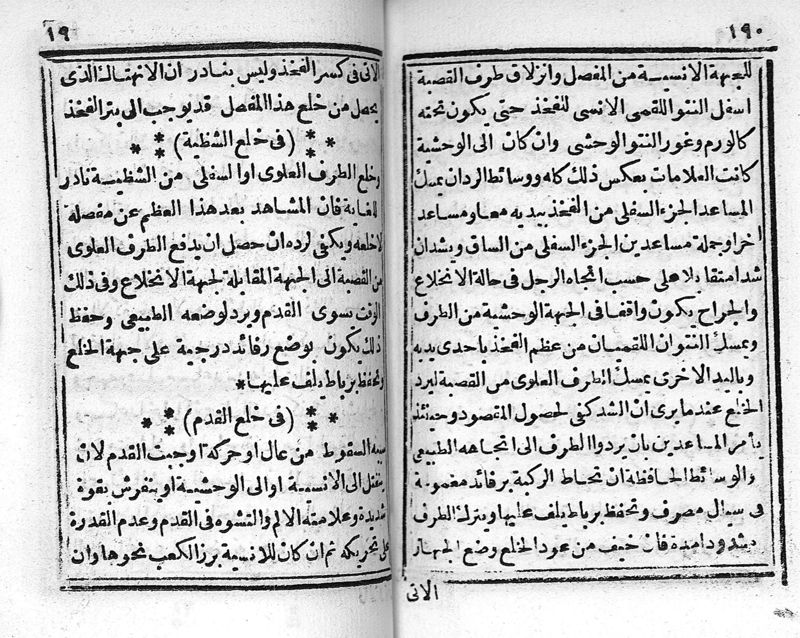 ١٩٠
للجهة الانسيـة من المفصل وانزلاق طرف القصبة
اسفل النتو اللقمى الانسى للفخذ حتى يكون تحته
كالورم وغور النتو الوحشى وان كان الى الوحشية
كانت العلامات بعكس ذلك كله ووسائط الرد ان يمسك
المساعد الجزء السفلى من الفخذ بيديه معا ومساعد
اخر او جملة مساعدين الجزء السفلى من الساق ويشدان
شدا متقابلا على حسب اتجاه الرجل فى حالة الانخلاع
والجراح يكون واقفا فى الجهة الوحشية من الطرف
ويمسك النتوان اللقميان من عظم الفخذ باحدى يديه
وباليد الاخرى يمسك الطرف العلوى من القصبة ليرد
الخلع عند ما يرى ان الشد كفى لحصول المقصود وحينئذ
يأمر المساعدين بان يردوا الطرف الى اتجاهه الطبيعى
والوسائط الحافظة ان تحاط الركبة برفائد مغموسة
فى سيال مصرف وتحفظ برباط يلف عليها ويترك الطرف
مشدودا مدة فان خيف من عود الخلع وضع الجهاز
الاتى
١٩
الاتى فى كسر الفخذ وليس بنادر ان الانهتاك الذى
يحصل من خلع هذا المفصل قد يوجب الى بتر الفخذ
* * * (فى خلع الشظية) * * *
وخلع الطرف العلوى او السفلى من الشظيـة نادر
للغاية فان المشاهد بعد هذا العظم عن مفصله
لا خلعه ويكفى لرده ان حصل ان يدفع الطرف العلوى
من القصبة الى الجهة المقابلة لجهة الانخلاع وفى ذلك
الوقت يسوى القدم ويرد لوضعه الطبيعى وحفظ
ذلك يكون بوضع رفائد درجية على جهة الخلع
وتحفظ برباط يلف عليها *
* * * (فى خلع القدم) * * *
سببه السقوط من عال او حركة اوجبت القدم لان
ينتقل الى الانسيـة او الى الوحشيـة او ينفرش بقوة
شديدة وعلامته الالم والتشوه فى القدم وعدم القدرة
على تحريكه ثم ان كان للانسية برز الكعب نحوها وان